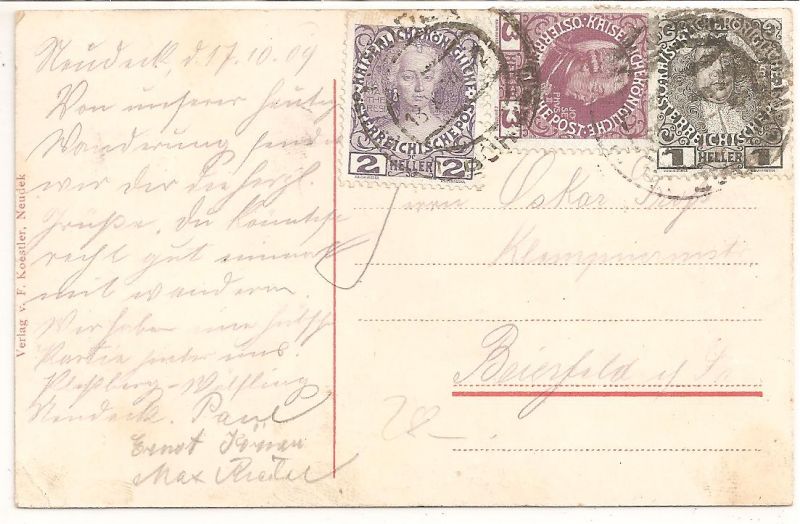 Neudeck, d. 17.10.09
Von unserer heutig
Wanderung senden
wir dir die herzl.
Grüße. Du könntest
recht gut einmal
mit wandern.
Wir haben eine hübsche
Partie hinter uns.
Plessberg-Wölfling
Neudeck. Paul
Ernst
Max Riedel
Verlag v. F. Koestler, Neudek
KAISERLICHE KÖNIGLICHE ÖSTERREICHISCHE POST
2 HELLER 2
KAISERLICHE KÖNIGLICHE ÖSTERREICHISCHE POST
3 3
KAISERLICHE KÖNIGLICHE ÖSTERREICHISCHE POST
1 HELLER 1
Herrn Oskar
Klempnermst.
Beierfeld i/ Sa.